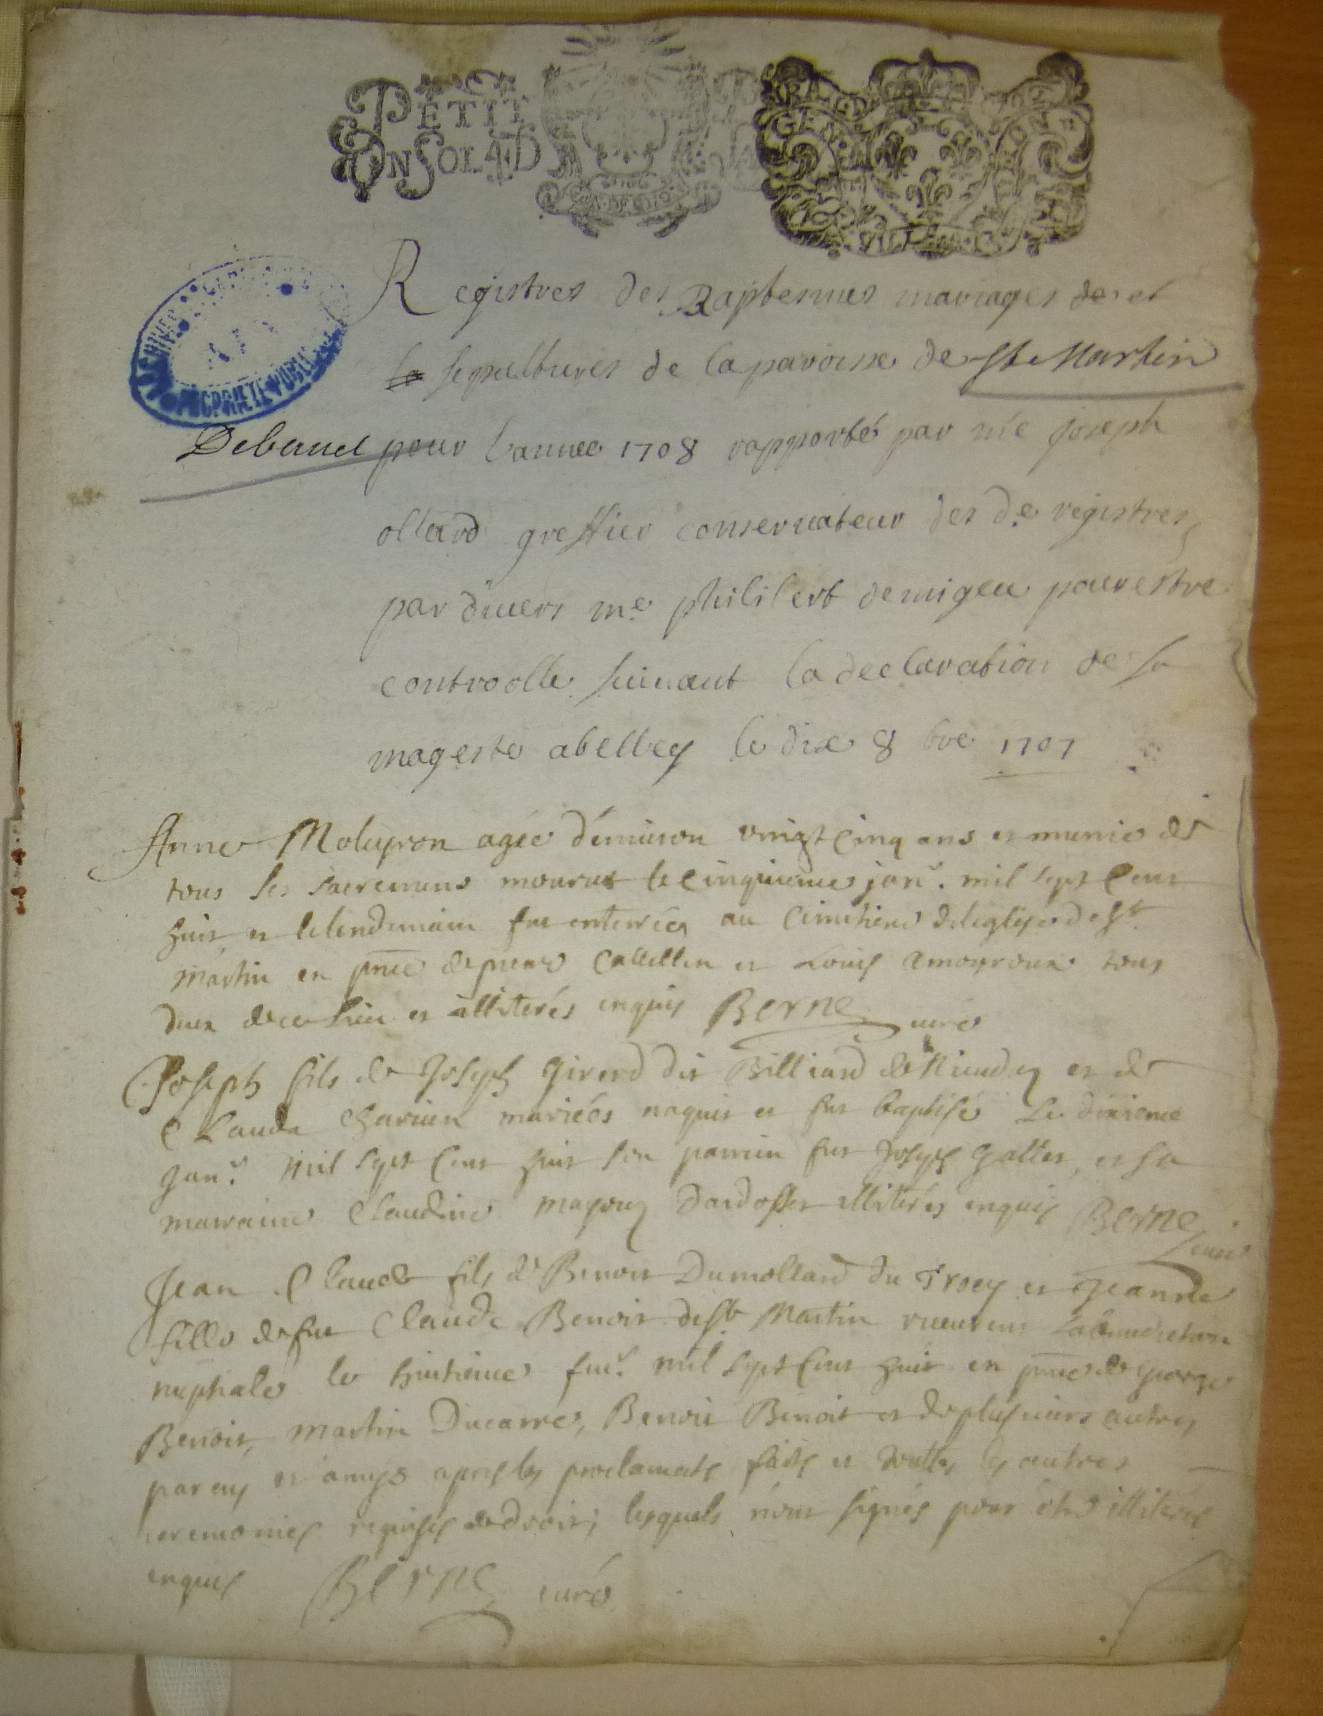 PETIT
UN SOL 4 D
GEN
Registres des Baptesmes mariages de et
la sepultures de la paroisse de St Martin
Debauel pour l'annee 1708 rapportés par me Joseph
ollard greffier conservateur des de registres
par devers me philibert demigeu pour estre
controolle suivant la declaration de sa
mageste a belley le dix 8 bre 1707
ARCHIVES
AIN
PROPRIETE PUBLIQUE
Anne Moleyron agée d'enuiron vingt cinq ans et munie de
tous les sacremens mourut le cinquieme janr. mil sept cent
huit et le lendemain fut enterrée au cimitiere de l'eglise de St
Martin en pnce de pierre et Louis amoyroux tous
deux de ce lieu et illiterés enquis Berne curé
Joseph fils de Joseph Girerd dit Billiard de et de
Claude mariés naquit et fut baptisé Le dixieme
Janr. mil sept cent huit son parrin fut Joseph Gallet, et sa
marraine Claudine illiterés enquis Berne curé
Jean Claude fils de Benoit Dumollard du et Jeanne
fille de fut Claude Benoit de St Martin receurent la benediction
nuptiale le huitieme feur. mil sept cent huit en pnce de George
Benoit, Martin Ducarre, Benoit Benoit et de plusieurs autres
parens et amys apres les proclamats faits et toutes les autres
ceremonies requises de droit; lesquels n'ont signés pour être illiterés
enquis Berne curé